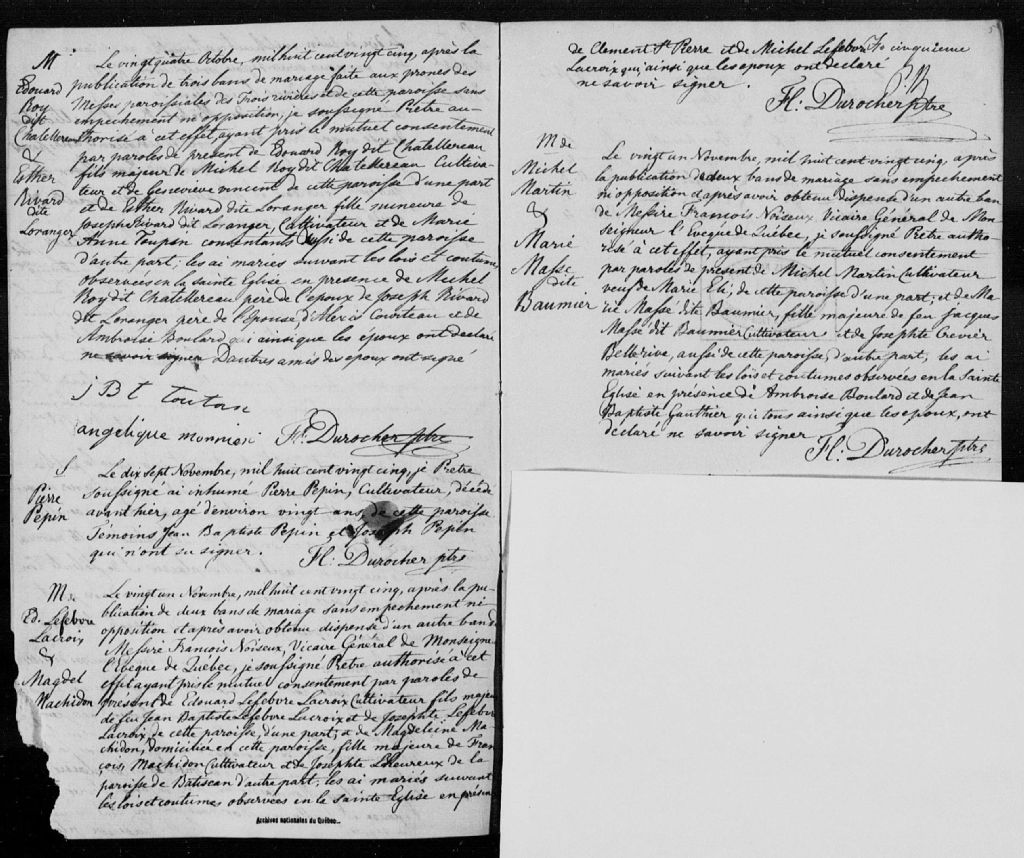 M
Edouard
Roy
dit
Chatellereau
&
Esther
Rivard
dite
Loranger
Le vingt quatre Octobre, mil huit cent vingt cinq, après la
publication de trois bans de mariage faite aux prones des
Messes paroissiales des Trois rivières et de cette paroisse sans
empechement ni opposition, je soussigné Prêtre au-
thorisé à cet effet ayant pris le mutuel consentement
par paroles de present de Edouard Roy dit Chatellereau
fils majeur de Michel Roy dit Chatellereau Cultiva-
teur et de Genevieve vincent de cette paroisse d'une part
et de Esther Rivard dite Loranger fille mineure de
Joseph Rivard dit Loranger, Cultivateur et de Marie
Anne Toupin consentants aussi de cette paroisse
d'autre part; les ai mariés suivant les lois et coutumes
observées en la sainte Eglise en presence de Michel
Roy dit Chatellereau pere de l'epoux de Joseph Rivard
dit Loranger père de l'épouse, d'Alexis Courteau et de
Ambroise Boulard qui ainsi que les époux ont declaré
ne savoir signer D'autres amis des epoux ont signé
j B t toutan
angelique monnian Fl: Durocher ptre
S
Pierre
Pepin
Le dix sept Novembre, mil huit cent vingt cinq, je Pretre
soussigné ai inhumé Pierre Pepin, Cultivateur, décédé
avant hier, agé d'environ vingt ans, de cette paroisse.
Témoins Jean Baptiste Pepin et Joseph Pepin
qui n'ont su signer.
Fl: Durocher ptre
M.
Ed. Lefebvre
Lacroix
&
Magdel
Machidon
Le vingt un Novembre, mil huit cent vingt cinq, après la pu-
blication de deux bans de mariage sans empechement ni
opposition et après avoir obtenue dispense d'un autre ban de
Messire François Noiseux, Vicaire Général de Monseigne
l'Eveque de Québec, je soussigné Pretre authorisé à cet
effet ayant pris le mutuel consentement par paroles de
présent de Edouard Lefebvre Lacroix Cultivateur fils majeur
de feu Jean Baptiste Lefebvre Lacroix et de Josephte Lefebvre
Lacroix, de cette paroisse, d'une part; & de Magdeleine Ma-
chidon, domiciliée en cette paroisse, fille majeure de Fran
çois Machidon Cultivateur et de Josephte LHeureux de la
paroisse de Batiscan d'autre part; les ai mariés suivant
les lois et coutumes observées en la sainte Eglise en présen
Archives nationales du Québec
de Clement St Pierre et de Michel Lefebvre
Lacroix qui ainsi que les epoux ont déclaré
ne savoir signer.
Fl. Durocher ptre
M de
Michel
Martin
&
Marie
Masse
dite
Baumier
Le vingt un Novembre, mil huit cent vingt cinq, après
la publication de deux bans de mariage sans empechement
ni opposition et après avoir obtenue dispense d'un autre ban
de Messire François Noiseux Vicaire Général de Mon
seigneur l'Eveque de Québec, je soussigné Pretre autho-
risé à cet effet, ayant pris le mutuel consentement
par paroles de présent de Michel Martin Cultivateur
veuf de Marie Eli, de cette paroisse d'une part; et de Ma
rie Massé dite Baumier, fille majeure de feu Jacques
Masse dit Baumier Cultivateur et de Josephte Crevier
Bellerive, aussi de cette paroisse, d'autre part; les ai
mariés suivant les lois et coutumes observées en la Sainte
Eglise en présence de Ambroise Boulard et de Jean
Baptiste Gauthier qui tous ainsi que les epoux, ont
déclaré ne savoir signer
Fl. Durocher ptre